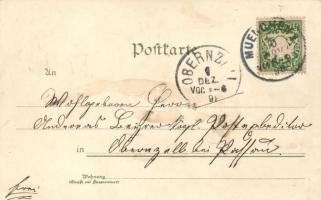 Postkarte
An
MUENCHEN
OBERNZELL
6
DEZ.
Wohlgeboren Herrn
Andreas
kgl. Postexpeditor
in
Obernzell bei Passau
Wohnung
(Straße und Hausnummer)
frei